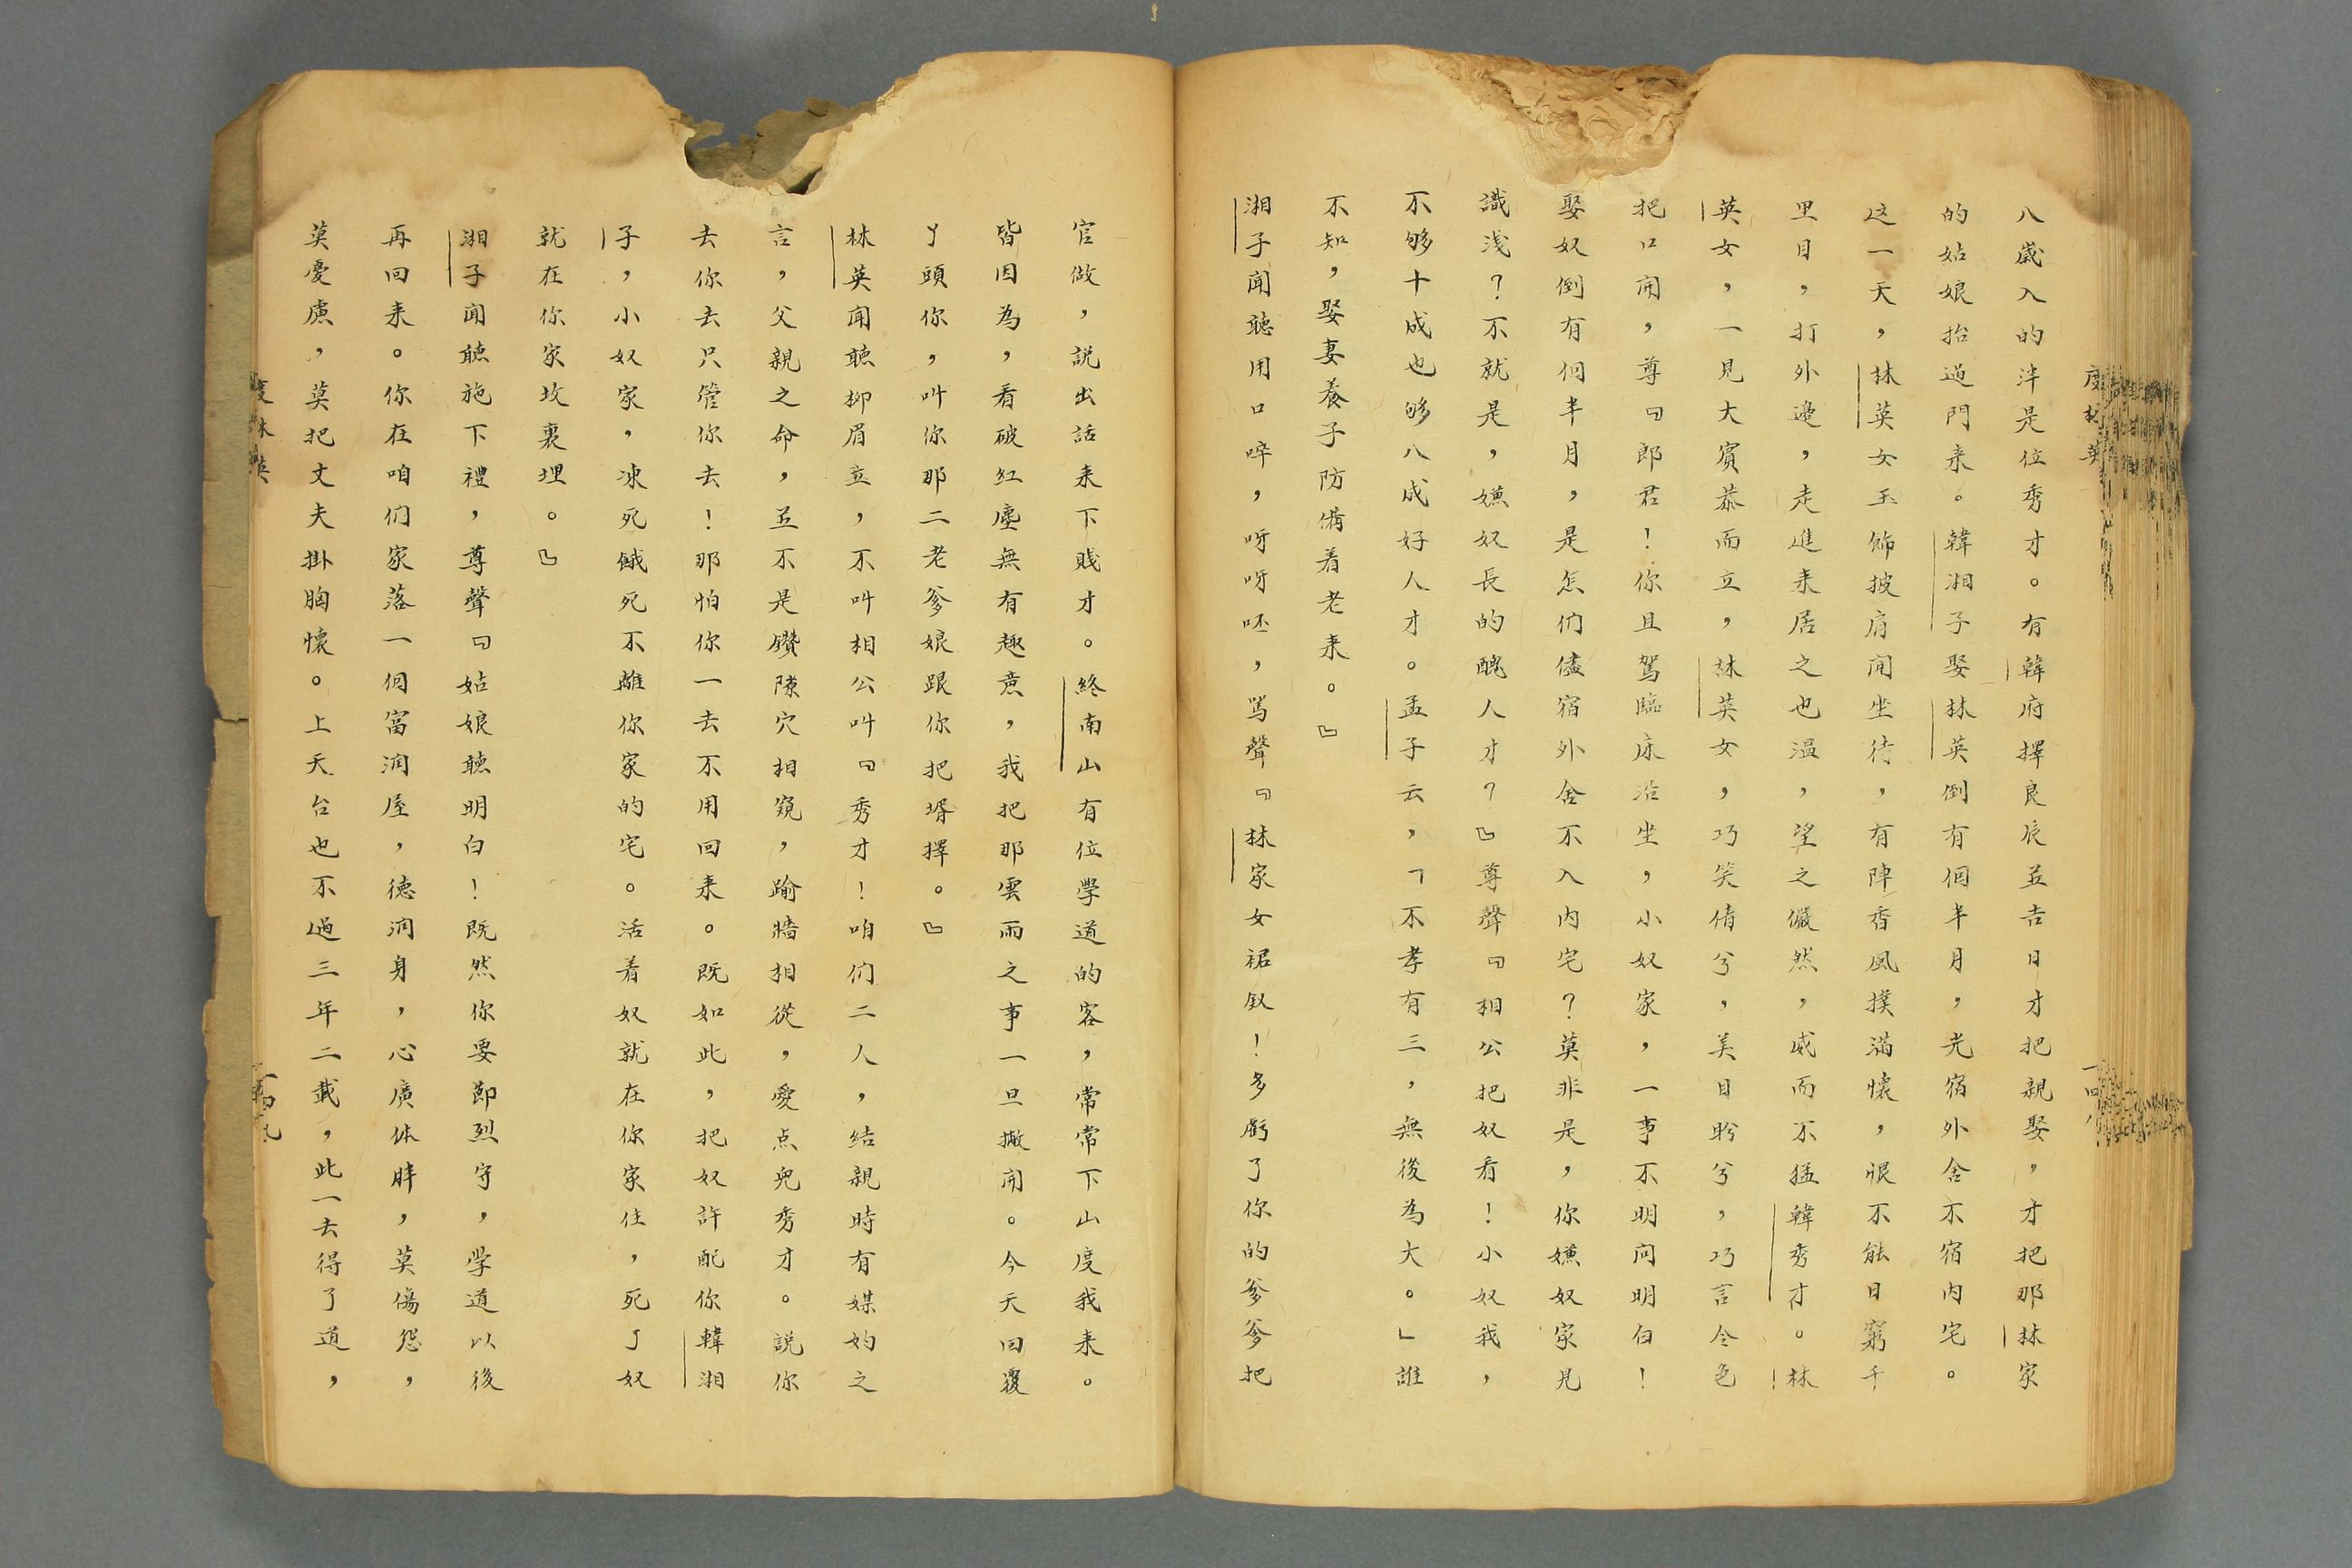 度林英
一回
八歲入的泮是位秀才。有韓府擇良辰並吉日才把親娶，才把那林家
的姑娘抬過門来。韓湘子娶林英倒有個半月，光宿外舍不宿内宅。
这一天，林英女玉飾披肩闲坐待，有陣香風撲滿懷，恨不能日窮千
里目，打外邊，走進来居之也温，望之儼然，威而不猛韓秀才。林
英女，一見大賓恭而立，林英女，巧笑倩兮，美目盼兮，巧言令色
把口闹，尊『郎君！你且駕臨床沿坐，小奴家，一事不明问明白！
娶奴倒有個半月，是怎们儘宿外舍不入内宅？莫非是，你嫌奴家見
識浅？不就是，嫌奴長的醜人才？』尊聲『相公把奴看！小奴我，
不够十成也够八成好人才。孟子云，「不孝有三，無後為大。」誰
不知，娶妻養子防備着老来。』
湘子闻聽用口啐，呀呀呸，罵聲『林家女裙釵！多虧了你的爹爹把
官做，説出話来下賤才。終南山有位學道的客，常常下山度我来。
皆因為，看破紅塵無有趣意，我把那雲雨之事一旦撇闹。今天回覆
丫頭你，叫你那二老爹娘跟你把壻擇。』
林英闻聽柳眉立，不叫相公叫『秀才！咱们二人，结親時有媒妁之
言，父親之命，並不是鑽隙穴相窺，踰牆相從，愛点兒秀才。説你
去你去只管你去！那怕你一去不用回来。既如此，把奴許配你韓湘
子，小奴家，凍死餓死不離你家的宅。活着奴就在你家住，死了奴
就在你家坟裏埋。』
湘子闻聽施下禮，尊聲『姑娘聽明白！既然你要節烈守，学道以後
再回来。你在咱们家落一個富润屋，德润身，心廣体胖，莫傷怨，
莫憂慮，莫把丈夫掛胸懷。上天台也不過三年二載，此一去得了道，
度林英